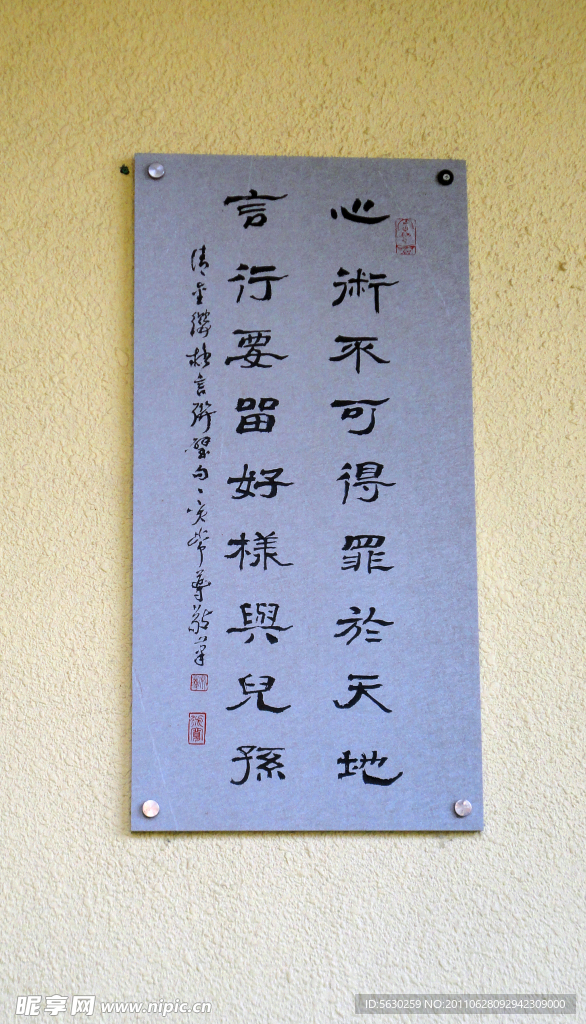 心術不可得罪於天地
言行要留好樣與兒孫
清金纓格言聯璧句
昵享网 www.nipic.cn
ID:5630259 NO:20110628092942309000